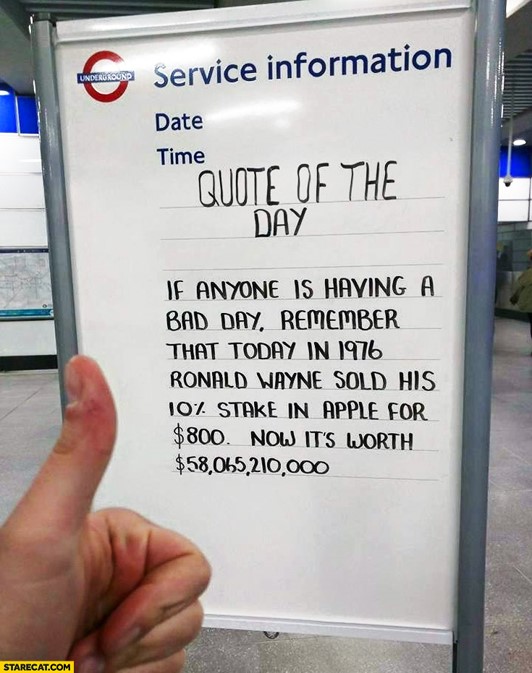 UNDERGROUND
Service information
Date
Time
QUOTE OF THE
DAY
IF ANYONE IS HAVING A
BAD DAY, REMEMBER
THAT TODAY IN 1976
RONALD WAYNE SOLD HIS
10% STAKE IN APPLE FOR
$800. NOW IT'S WORTH
$58,065,210,000
STARECAT.COM